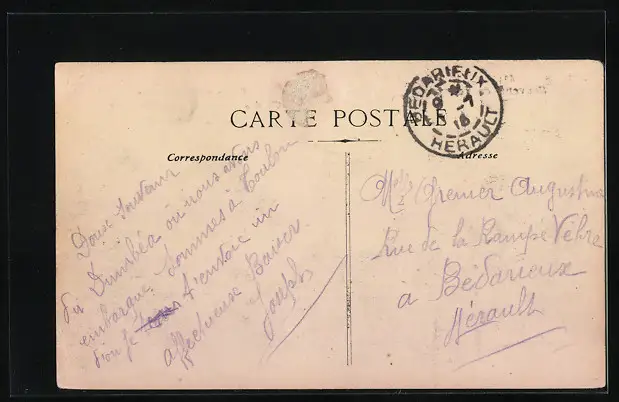 CARTE POSTALE
BEDARIEUX
9 - 7
16
HERAULT
Correspondance
Doux Souvenir
du Dumbéa où nous avons
embarqué sommes à Toulon
d'où je envoie un
affectueux Baiser
Joseph
Adresse
Grenier Augustine
Rue de la Rampe Vehre
à Bédarieux
Hérault